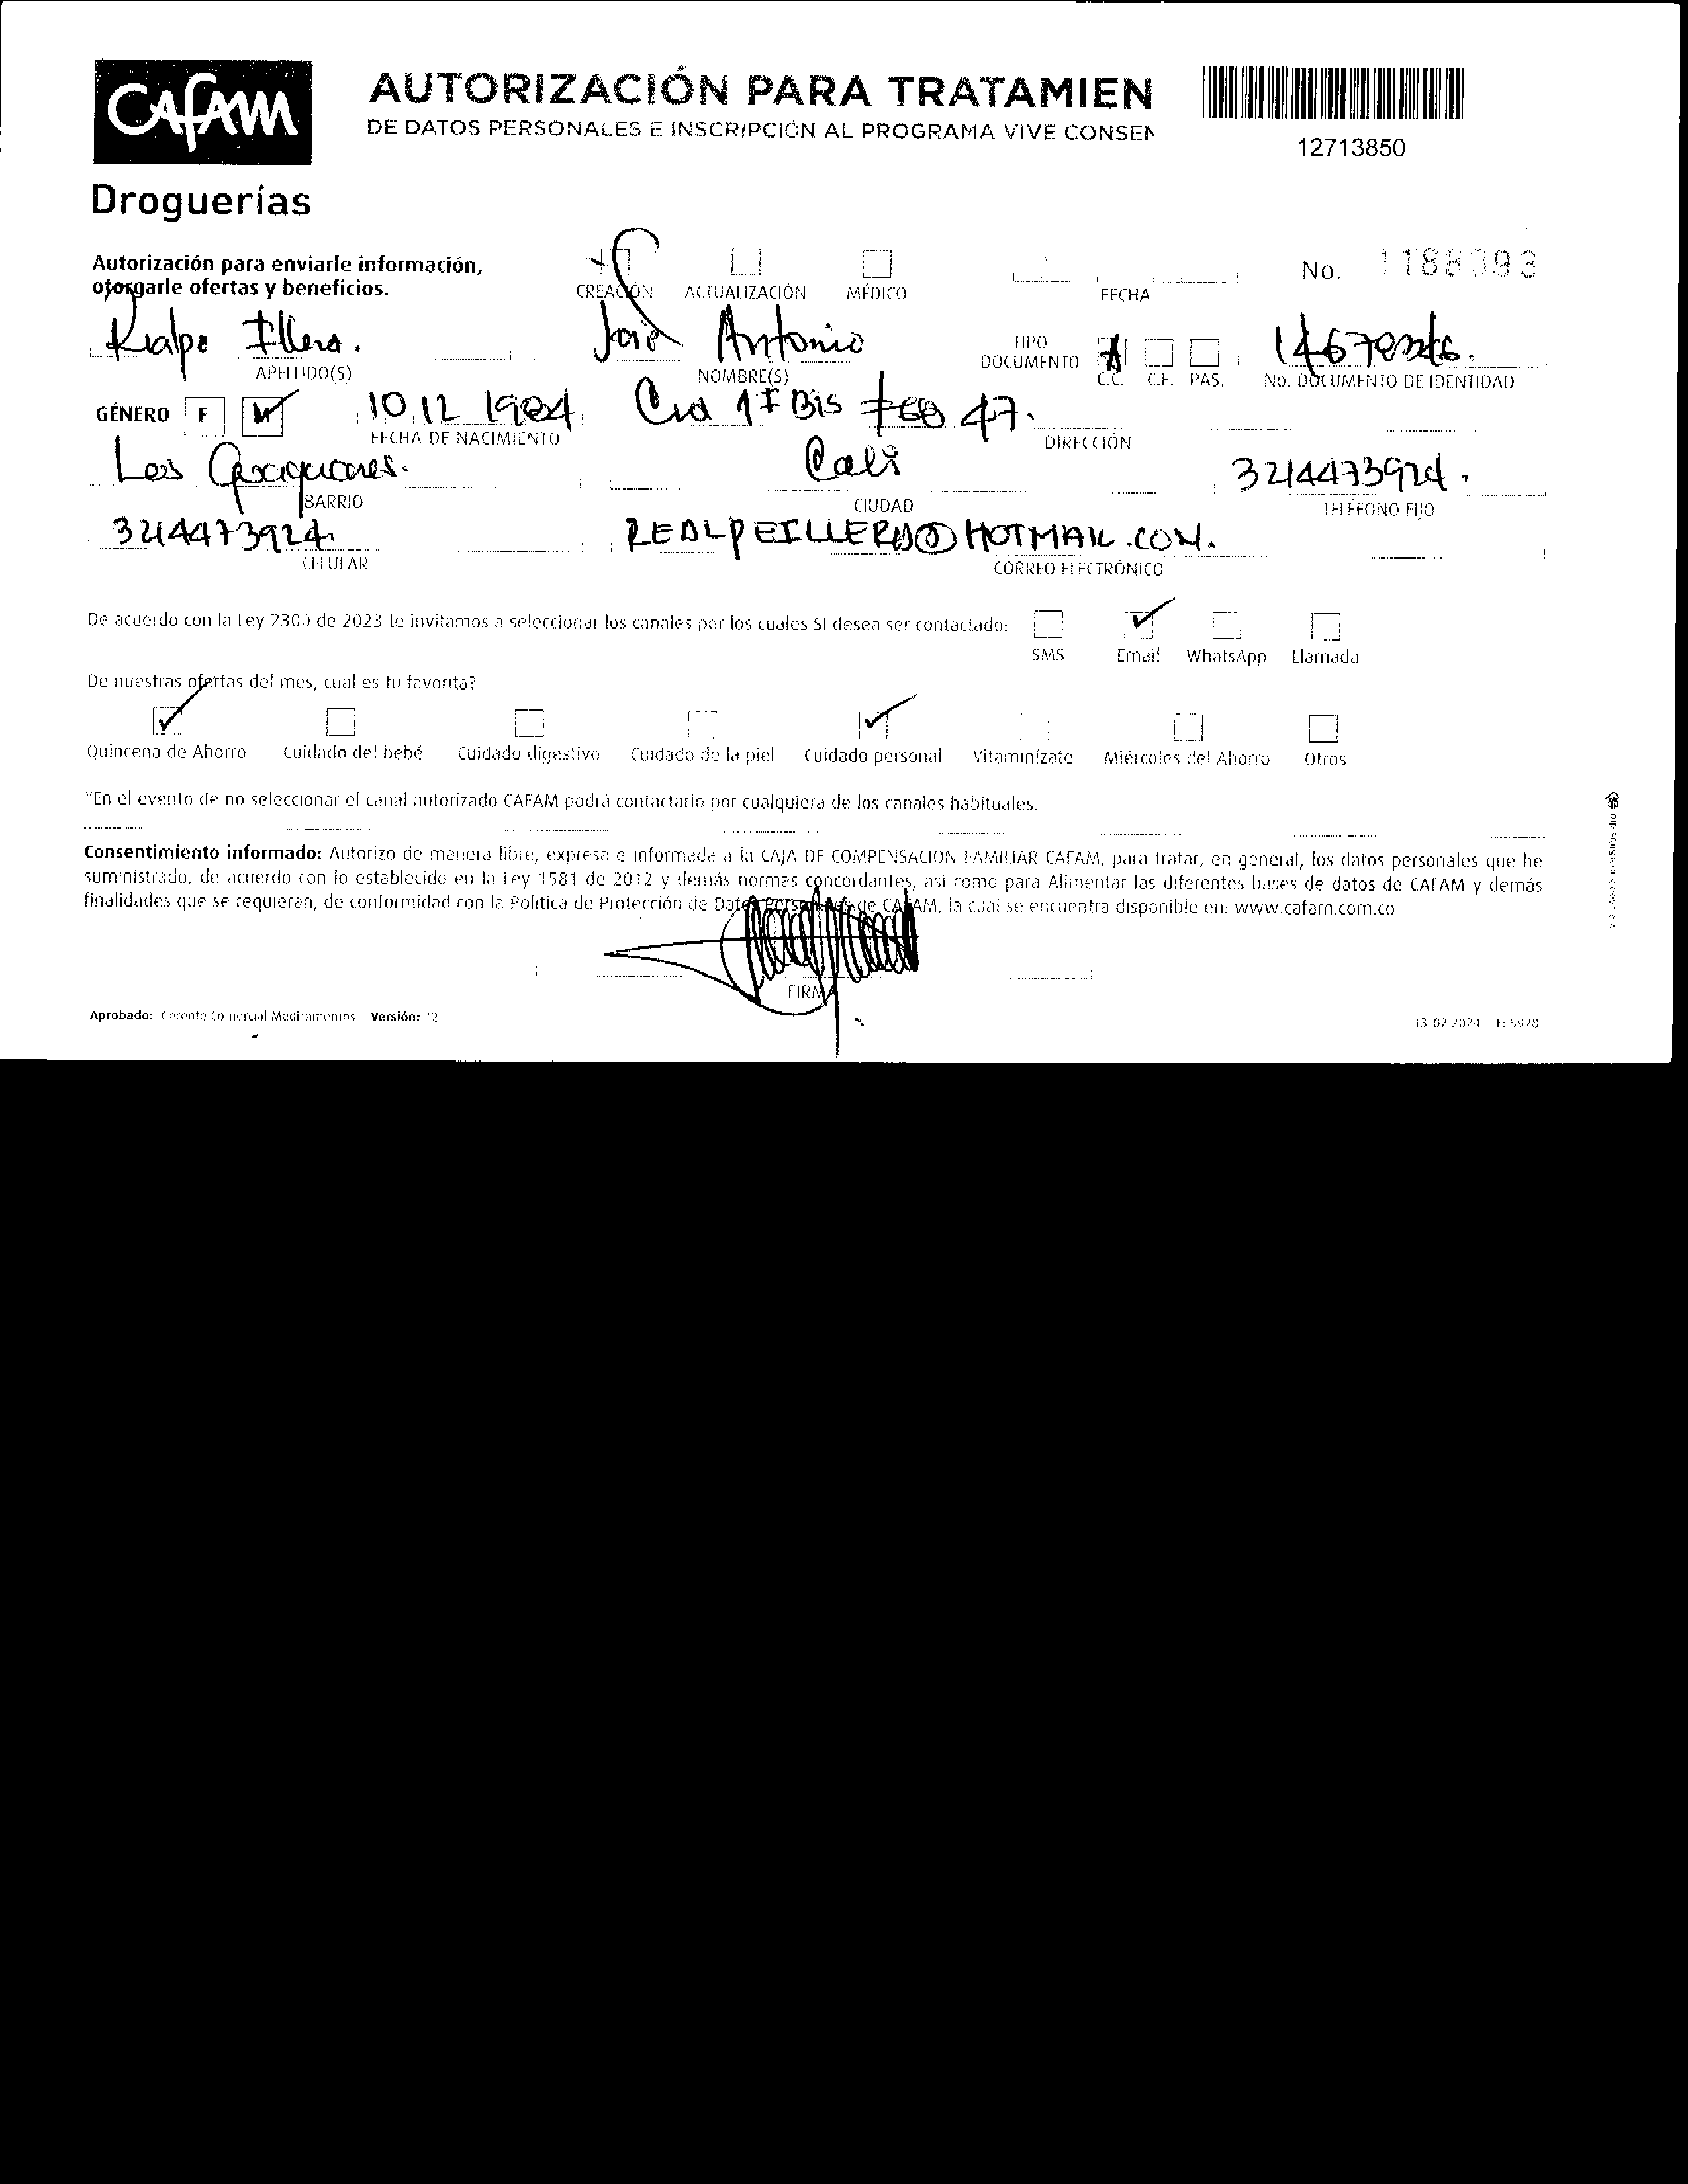 CAFAM
AUTORIZACIÓN PARA TRATAMIEN
DE DATOS PERSONALES E INSCRIPCIÓN AL PROGRAMA VIVE CONSEN
12713850
Droguerías
Autorización para enviarle información,
otorgarle ofertas y beneficios.
CREACIÓN ACTUALIZACIÓN MÉDICO FECHA No.
Illera. José Antonio
APELLIDO(S) NOMBRE(S) TIPO DOCUMENTO C.C. C.E. PAS. No. DOCUMENTO DE IDENTIDAD
GÉNERO F M 10 12 Cra 1 Bis 47.
FECHA DE NACIMIENTO DIRECCIÓN
Los Cali 3214473924.
BARRIO CIUDAD TELÉFONO FIJO
3214473924. REALPEILLERA@HOTMAIL.COM.
CELULAR CORREO ELECTRÓNICO
De acuerdo con la Ley 2300 de 2023 te invitamos a seleccionar los canales por los cuales SI desea ser contactado:
SMS Email WhatsApp Llamada
De nuestras ofertas del mes, cual es tu favorita?
Quincena de Ahorro Cuidado del bebé Cuidado digestivo Cuidado de la piel Cuidado personal Vitamínízate Miércoles del Ahorro Otros
*En el evento de no seleccionar el canal autorizado CAFAM podrá contactarlo por cualquiera de los canales habituales.
Consentimiento informado: Autorizo de manera libre, expresa e informada a la CAJA DE COMPENSACIÓN FAMILIAR CAFAM, para tratar, en general, los datos personales que he
suministrado, de acuerdo con lo establecido en la Ley 1581 de 2012 y demás normas concordantes, así como para Alimentar las diferentes bases de datos de CAFAM y demás
finalidades que se requieran, de conformidad con la Política de Protección de Datos Personales de CAFAM, la cual se encuentra disponible en: www.cafam.com.co
FIRMA
Aprobado: Gerente Comercial Medicamentos Versión: 12
13 02 2024 F: 5928